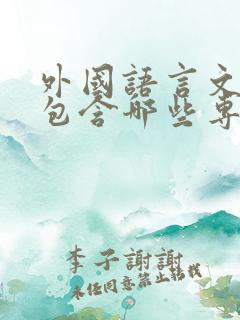 外國語言文
包含哪些專
李子謝謝
未经同意禁止转载